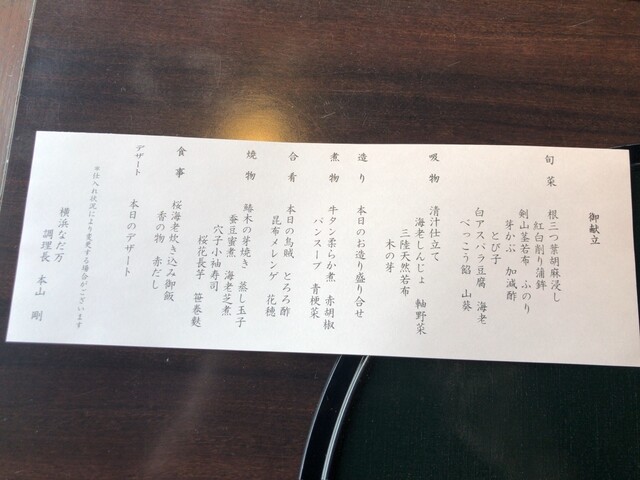 御献立
旬菜 根三つ葉胡麻浸し
紅白削り蒲鉾
剣山茎若布 ふのり
芽かぶ 加減酢
とび子
白アスパラ豆腐 海老
べっこう餡 山葵
吸物 清汁仕立て
海老しんじょ 軸野菜
三陸天然若布
木の芽
造り 本日のお造り盛り合せ
煮物 牛タン柔らか煮 赤胡椒
パンスープ 青梗菜
合肴 本日の烏賊 とろろ酢
昆布メレンゲ 花穂
焼物 鰆木の芽焼き 蒸し玉子
蚕豆蜜煮 海老芝煮
穴子小袖寿司
桜花長芋 笹巻麩
食事 桜海老炊き込み御飯
香の物 赤だし
デザート 本日のデザート
※仕入れ状況により変更する場合がございます
横浜なだ万
調理長 本山 剛